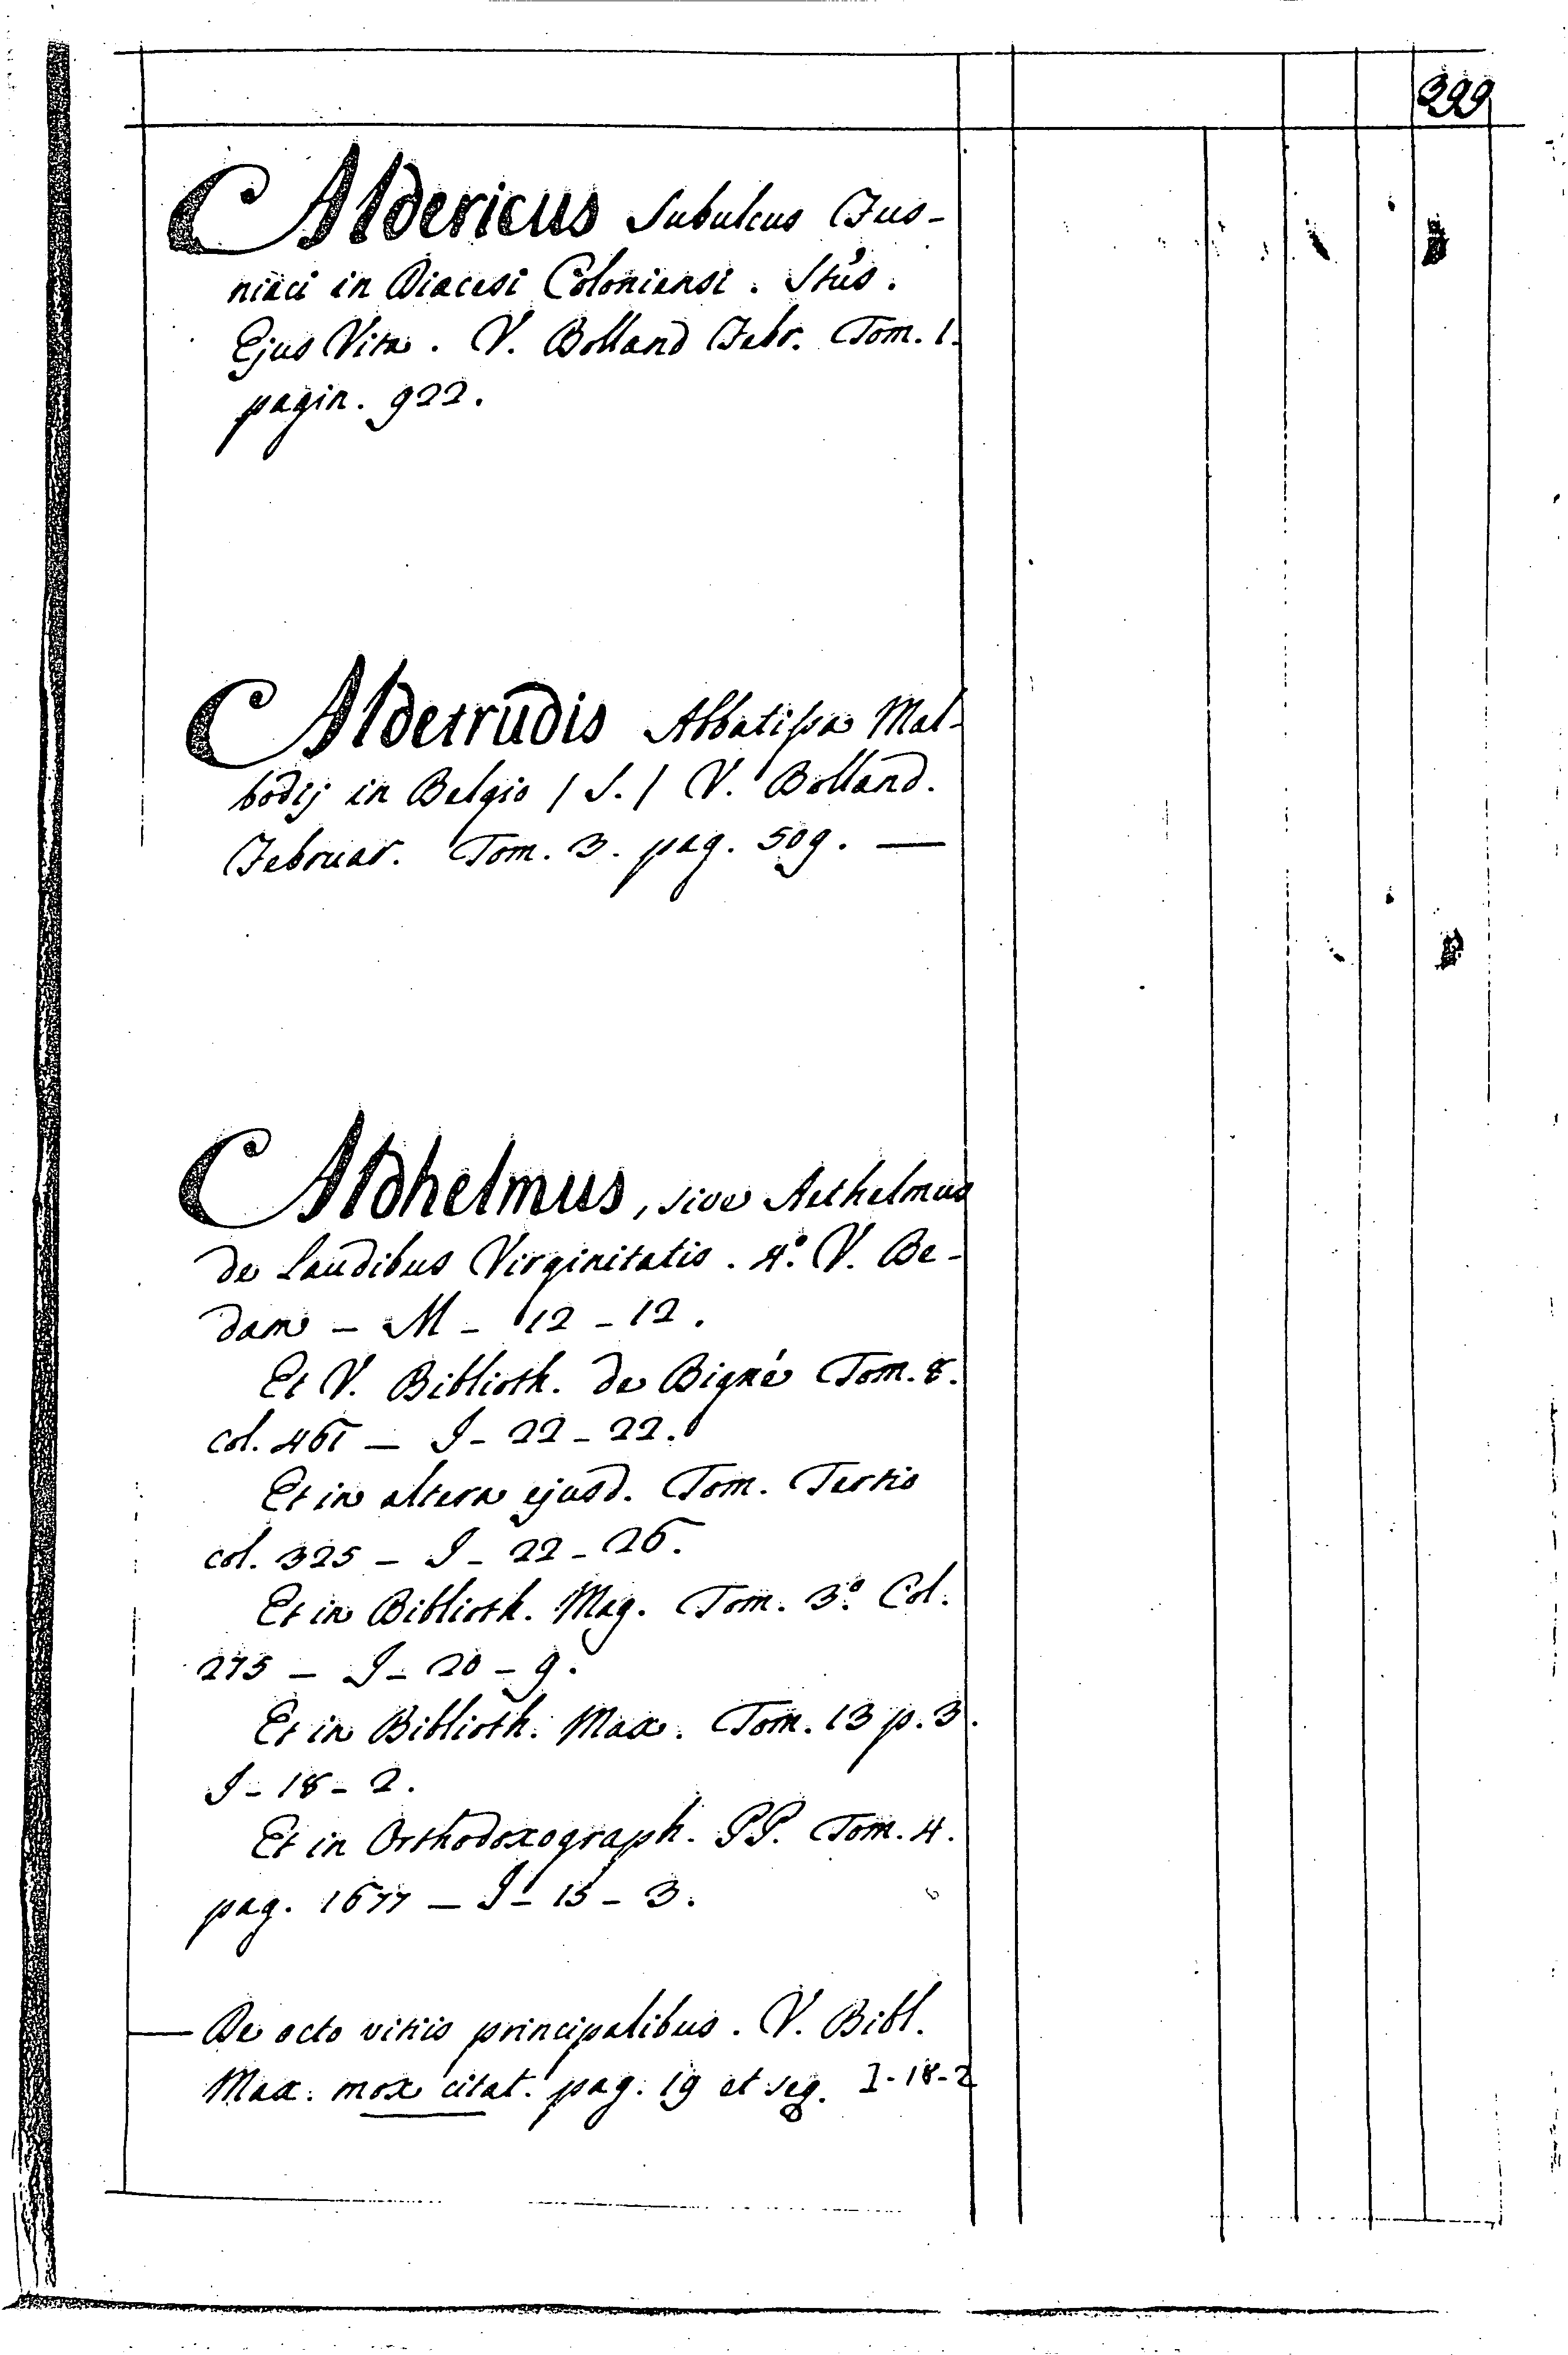 399
Aldericus Subulcus Fus-
niaci in Diacesi Coloniensi. Stus.
Ejus Vita. V. Bolland Febr. Tom. 1.
pagin. 922.
Aldetrudis Abbatissa Mal-
bodij in Belgio / S. / V. Bolland.
Februar. Tom. 3. pag. 509. —
Aldhelmus, sive Aethelmus
de Laudibus Virginitatis. 4º. V. Be-
dam — M - 12 - 12.
Et V. Biblioth. de Bigné Tom. 8.
col. 461 — I - 22 - 22.
Et in altera ejusd. Tom. Tertio
col. 325 — I - 22 - 26.
Et in Biblioth. Mag. Tom. 3º. Col.
275 — I - 20 - 9.
Et in Biblioth. Max. Tom. 13 p. 3.
I - 18 - 2.
Et in Orthodoxograph. PP. Tom. 4.
pag. 1677 — I - 15 - 3.
— De octo vitiis principalibus. V. Bibl.
Max. mox citat. pag. 19 et seq. I-18-2